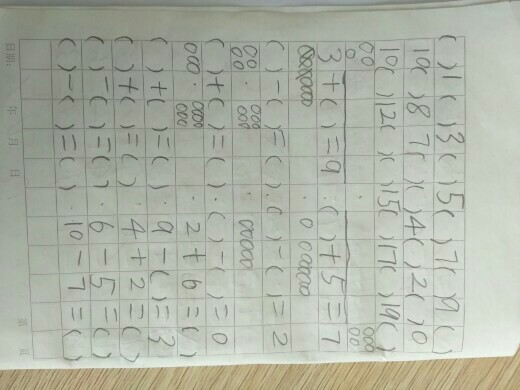 ( )1( )3( )5( )7( )9( )
10( )8 7( )( )4( )2( )0
10( )12( )( )15( )17( )19( )
3+( )=9 · ( )+5=7
( )-( )=( ) · ( )-( )=2
( )+( )=( ) · ( )-( )=0
2+6=( )
( )+( )=( ) · 9-( )=3
( )+( )=( ) · 4+2=( )
( )-( )=( ) · 6-5=( )
( )-( )=( ) · 10-7=( )
日期: 年 月 日